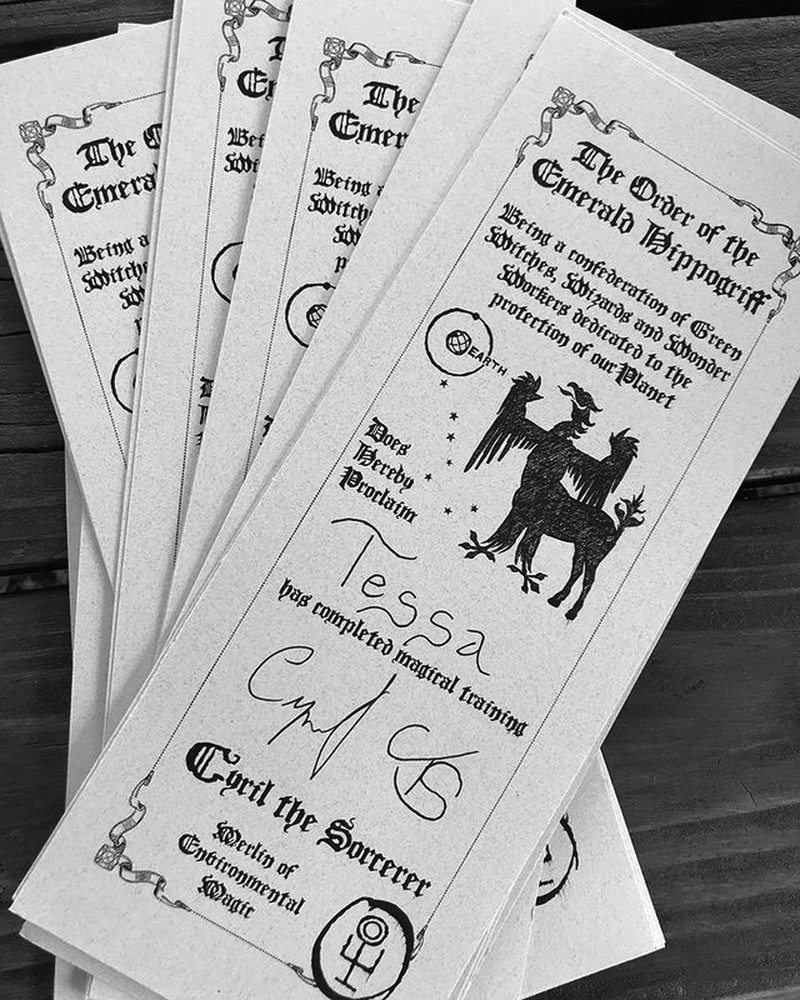 The Order of the
Emerald Hippogriff
Being a confederation of Green
Witches, Wizards and Wonder
Workers dedicated to the
protection of our Planet
EARTH
Does
Hereby
Proclaim
Tessa
has completed magical training
Cyril
Cyril the Sorcerer
Merlin of
Environmental
Magic
The O
Emera
Being a
Witche
The
Emer
Being a
Witch
Bei